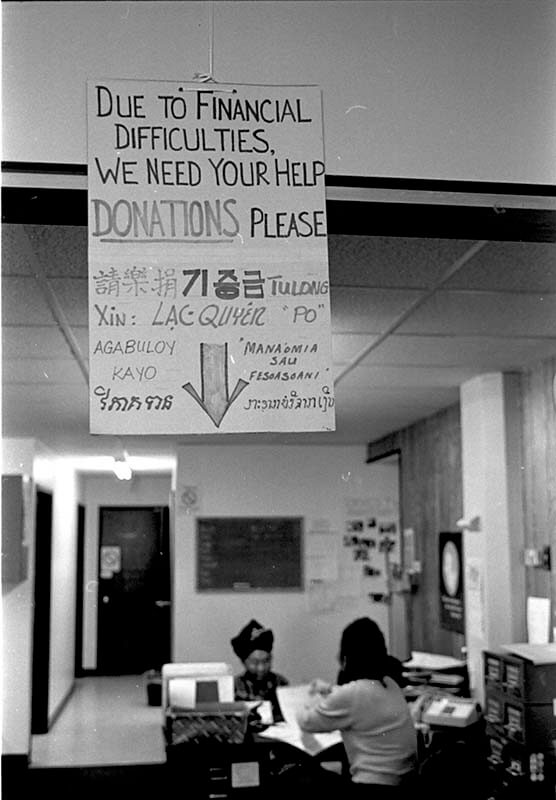 DUE TO FINANCIAL
DIFFICULTIES,
WE NEED YOUR HELP
DONATIONS, PLEASE
請樂捐 기증금 TULONG
XIN: LẠC-QUYÊN "PO"
AGABULOY
KAYO
'MANA'OMIA
SAU
FESOASOANI'
វិភាគទាន
ກະລຸນາບໍລິຈາກເງິນ